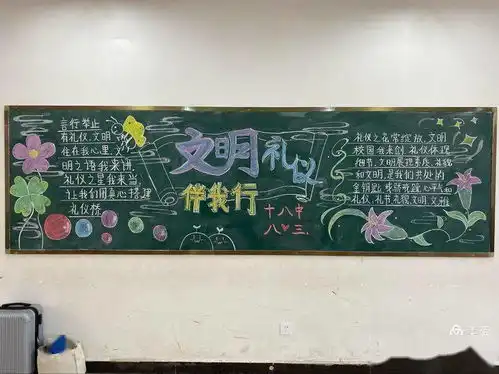 言行举止
有礼仪,文明
住在我心里,文
明之语我来讲
礼仪之星我来当
让我们用真心搭建
礼仪桥
文明礼仪
伴我行
十八中
八 三
礼仪之花常绽放,文明
校园我来创,礼仪体现
细节,文明展现素质,礼貌
和文明,是我们共处的
金钥匙
礼仪,礼节,礼貌,文明